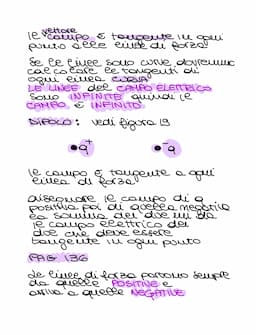 vettore
il campo è tangente in ogni
punto alle linee di forza!
Se le linee sono curve dovremmo
calcolare le tangenti di
ogni linea CURVA!
LE LINEE DEL CAMPO ELETTRICO
sono INFINITE quindi il
CAMPO È INFINITO
DIPOLO: vedi figura 19
q+ -q
il campo è tangente a ogni
linea di forza!
disegnare il campo di q
positiva poi di quella negativa
la somma dei due mi dà
il campo elettrico dei
due che deve essere
tangente in ogni punto
PAG 136
Le linee di forza partono sempre
da quelle POSITIVE e
arriva a quelle NEGATIVE